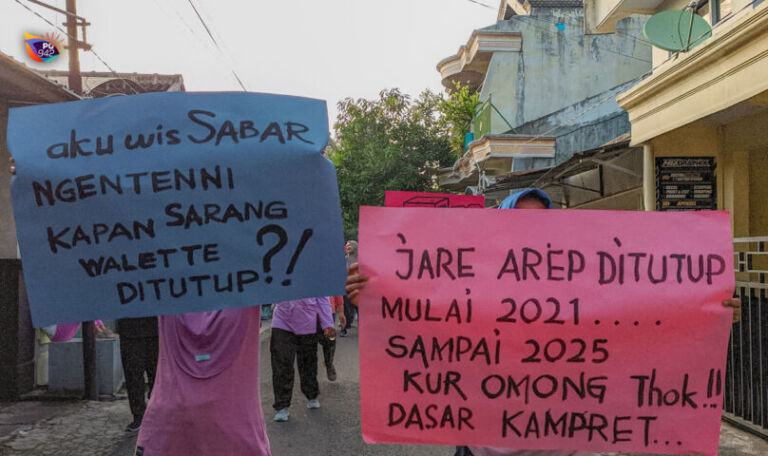 PU
942
aku wis SABAR
NGENTENNI
KAPAN SARANG
WALETTE
DITUTUP ?!
JARE AREP DITUTUP
MULAI 2021....
SAMPAI 2025
KUR OMONG Thok!!
DASAR KAMPRET...